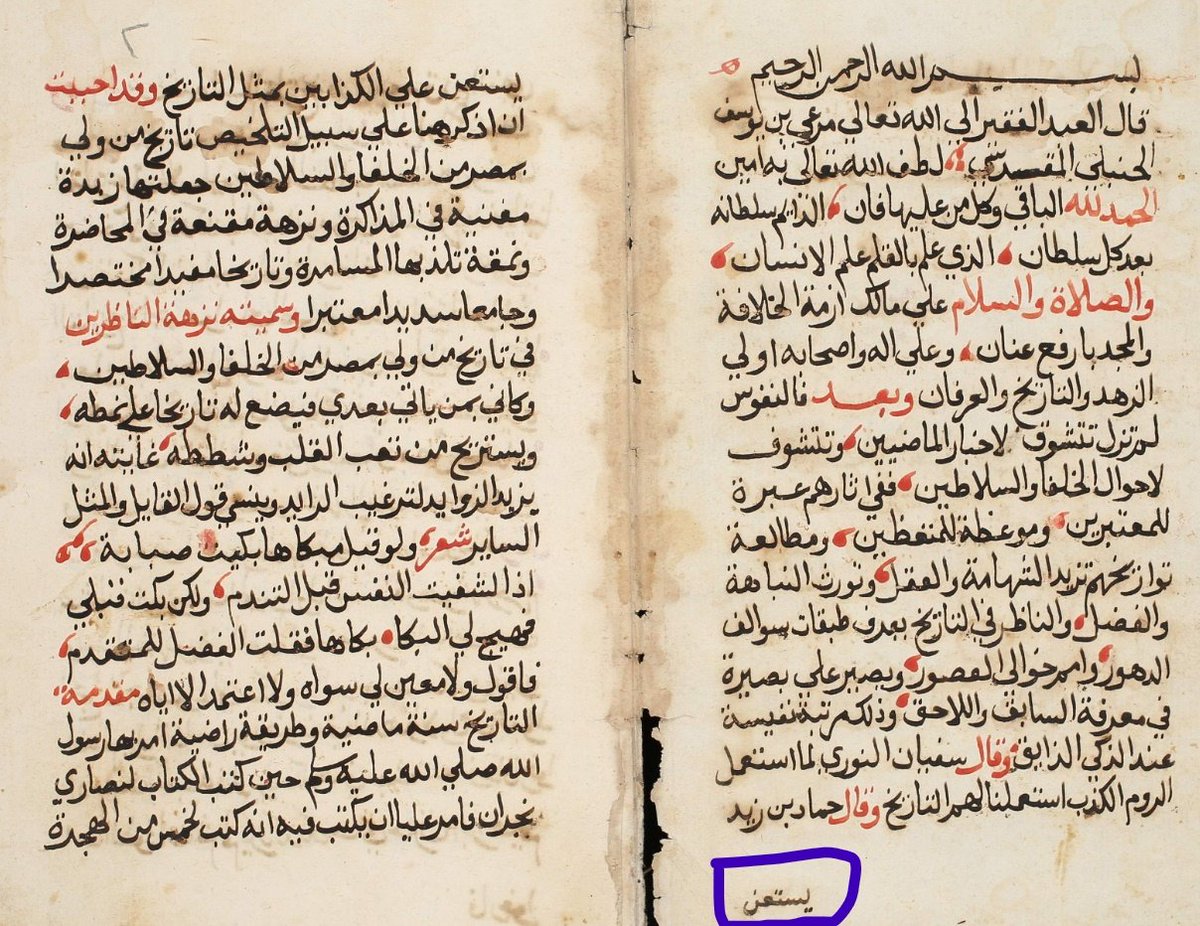 بسم الله الرحمن الرحيم
قال العبد الفقير الي الله تعالي مرعي بن يوسف
الحنبلي المقدسي لطف الله تعالى به امين
الحمد لله الباقي وكل من عليها فان الدايم سلطانه
بعد كل سلطان الذي علم بالقلم علم الانسان
والصلاة والسلام علي مالك ازمة الخلافة
والمجد بارفع عنان وعلي اله واصحابه اولي
الزهد والتاريخ والعرفان وبعد فالنفوس
لم تزل تتشوق لاخبار الماضيين وتتشوف
لاحوال الخلفا والسلاطين ففي اثارهم عبرة
للمعتبرين وموعظة للمتعظين ومطالعة
تواريخهم تزيد الشهامة والعقل وتورث النباهة
والفضل والناظر في التاريخ يعرف طبقات سوالف
الدهور وامم خوالي العصور ويصير علي بصيرة
في معرفة السابق واللاحق وذلك مرتبة نفيسة
عند الذكي الذايق وقال سفيان الثوري لما استعمل
الروم الكذب استعملنا لهم التاريخ وقال حماد بن زيد
يستعن
٢
يستعن علي الكذابين بمثل التاريخ وقد احببت
ان اذكر هنا علي سبيل التلخيص تاريخ من ولي
بمصر من الخلفا والسلاطين جعلتها زبدة
مغنية في المذاكرة ونزهة مقنعة في المحاضرة
وتحفة تلذ بها المسامرة وتاريخا مفيدا مختصرا
وجامعا سديدا معتبرا وسميته نزهة الناظرين
في تاريخ من ولي بمصر من الخلفا والسلاطين
وكاني بمن ياتي بعدي فيضع له تاريخا علي نمطه
ويستريح من تعب القلب وشططه غايته انه
يزيد الزوايد لترغيب الرايد وينسي قول القايل والمثل
الساير شعر ولو قبل مبكاها بكيت صبابة
اذا لشفيت النفس قبل التندم ولكن بكت قبلي
فهيج لي البكا بكاها فقلت الفضل للمتقدم
فاقول ولا معين لي سواه ولا اعتمد الا اياه مقدمة
التاريخ سنة ماضية وطريقة راضية امر بها رسول
الله صلي الله عليه وسلم حين كتب الكتاب لنصاري
نجران فامر عليا ان يكتب فيه انه كتب لخمس من الهجرة